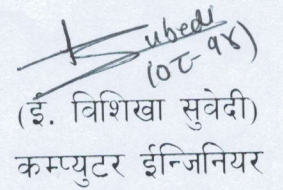 Subedi
(०८-१४)
(ई. विशिखा सुवेदी)
कम्प्युटर ईन्जिनियर